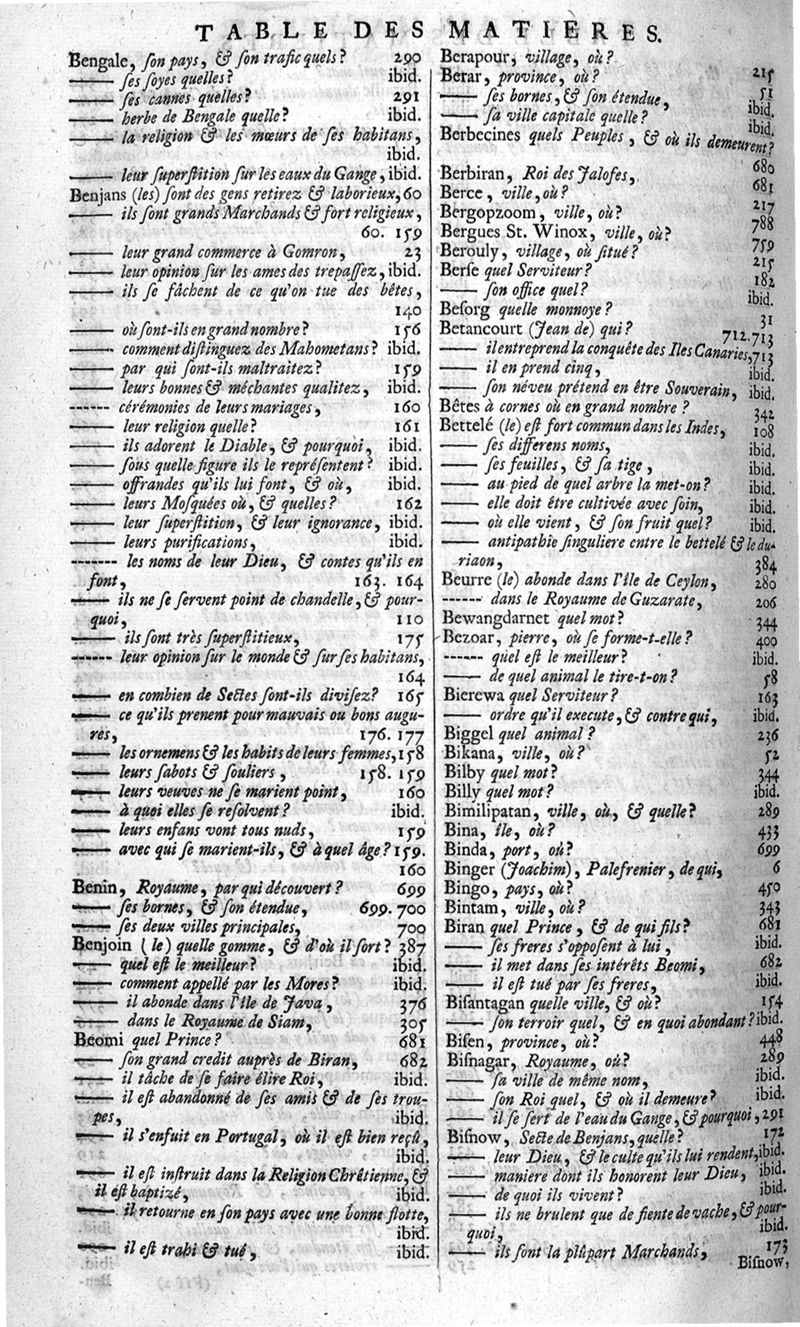 TABLE DES MATIERES.
Bengale, ſon pays, & ſon trafic quels? 290
—— ſes ſoyes quelles? ibid.
—— ſes cannes quelles? 291
—— herbe de Bengale quelle? ibid.
—— la religion & les mœurs de ſes habitans,
ibid.
—— leur ſuperſtition ſur les eaux du Gange, ibid.
Benjans (les) ſont des gens retirez & laborieux, 60
—— ils ſont grands Marchands & fort religieux,
60. 159
—— leur grand commerce à Gomron, 23
—— leur opinion ſur les ames des trepaſſez, ibid.
—— ils ſe fâchent de ce qu'on tue des bêtes,
140
—— où ſont-ils en grand nombre? 156
—— comment diſtinguez des Mahometans? ibid.
—— par qui ſont-ils maltraitez? 159
—— leurs bonnes & méchantes qualitez, ibid.
------ cérémonies de leurs mariages, 160
—— leur religion quelle? 161
—— ils adorent le Diable, & pourquoi, ibid.
—— ſous quelle figure ils le repréſentent? ibid.
—— offrandes qu'ils lui font, & où, ibid.
—— leurs Moſquées où, & quelles? 162
—— leur ſuperſtition, & leur ignorance, ibid.
—— leurs purifications, ibid.
------ les noms de leur Dieu, & contes qu'ils en
font, 163. 164
—— ils ne ſe ſervent point de chandelle, & pour-
quoi, 110
—— ils ſont très ſuperſtitieux, 175
------ leur opinion ſur le monde & ſur ſes habitans,
164
—— en combien de Sectes ſont-ils diviſez? 165
—— ce qu'ils prenent pour mauvais ou bons augu-
res, 176. 177
—— les ornemens & les habits de leurs femmes, 158
—— leurs ſabots & ſouliers, 158. 159
—— leurs veuves ne ſe marient point, 160
—— à quoi elles ſe reſolvent? ibid.
—— leurs enfans vont tous nuds, 159
—— avec qui ſe marient-ils, & à quel âge? 159.
160
Benin, Royaume, par qui découvert? 699
—— ſes bornes, & ſon étendue, 699. 700
—— ſes deux villes principales, 700
Benjoin (le) quelle gomme, & d'où il ſort? 387
—— quel eſt le meilleur? ibid.
—— comment appellé par les Mores? ibid.
—— il abonde dans l'île de Java, 376
—— dans le Royaume de Siam, 305
Beomi quel Prince? 681
—— ſon grand credit auprès de Biran, 682
—— il tâche de ſe faire élire Roi, ibid.
—— il eſt abandonné de ſes amis & de ſes trou-
pes, ibid.
—— il s'enfuit en Portugal, où il eſt bien reçû,
ibid.
—— il eſt inſtruit dans la Religion Chrêtienne, &
il eſt baptizé, ibid.
—— il retourne en ſon pays avec une bonne flotte,
ibid.
—— il eſt trahi & tué, ibid.
Berapour, village, où? 215
Berar, province, où? 51
—— ſes bornes, & ſon étendue, ibid.
—— ſa ville capitale quelle? ibid.
Berbecines quels Peuples, & où ils demeurent?
680
Berbiran, Roi des Jalofes, 681
Berce, ville, où? 217
Bergopzoom, ville, où? 788
Bergues St. Winox, ville, où? 759
Berouly, village, où ſitué? 215
Berſe quel Serviteur? 182
—— ſon office quel? ibid.
Beſorg quelle monnoye? 31
Betancourt (Jean de) qui? 712. 713
—— il entreprend la conquête des Iles Canaries, 713
—— il en prend cinq, ibid.
—— ſon néveu prétend en être Souverain, ibid.
Bêtes à cornes où en grand nombre? 342
Bettelé (le) eſt fort commun dans les Indes, 108
—— ſes differens noms, ibid.
—— ſes feuilles, & ſa tige, ibid.
—— au pied de quel arbre la met-on? ibid.
—— elle doit être cultivée avec ſoin, ibid.
—— où elle vient, & ſon fruit quel? ibid.
—— antipathie ſinguliere entre le bettelé & le du-
riaon, 384
Beurre (le) abonde dans l'île de Ceylon, 280
------ dans le Royaume de Guzarate, 206
Bewangdarnet quel mot? 344
Bezoar, pierre, où ſe forme-t-elle? 400
------ quel eſt le meilleur? ibid.
—— de quel animal le tire-t-on? 58
Bierewa quel Serviteur? 163
—— ordre qu'il execute, & contre qui, ibid.
Biggel quel animal? 236
Bikana, ville, où? 52
Bilby quel mot? 344
Billy quel mot? ibid.
Bimilipatan, ville, où, & quelle? 289
Bina, île, où? 433
Binda, port, où? 699
Binger (Joachim), Palefrenier, de qui, 6
Bingo, pays, où? 450
Bintam, ville, où? 343
Biran quel Prince, & de qui fils? 681
—— ſes freres s'oppoſent à lui, ibid.
—— il met dans ſes intérêts Beomi, 682
—— il eſt tué par ſes freres, ibid.
Biſantagan quelle ville, & où? 154
—— ſon terroir quel, & en quoi abondant? ibid.
Biſen, province, où? 448
Biſnagar, Royaume, où? 289
—— ſa ville de même nom, ibid.
—— ſon Roi quel, & où il demeure? ibid.
—— il ſe ſert de l'eau du Gange, & pourquoi, 291
Biſnow, Secte de Benjans, quelle? 172
—— leur Dieu, & le culte qu'ils lui rendent, ibid.
—— maniere dont ils honorent leur Dieu, ibid.
—— de quoi ils vivent? ibid.
—— ils ne brulent que de fiente de vache, & pour-
quoi, ibid.
—— ils ſont la plûpart Marchands, 173
Biſnow,